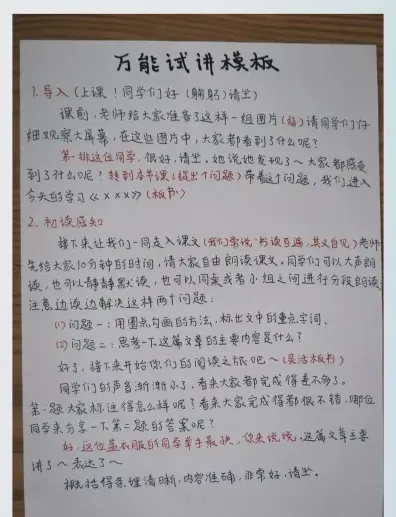 万能试讲模板
1.导入(上课！同学们好(鞠躬)请坐)
课前,老师给大家准备了这样一组图片(指)请同学们仔
细观察大屏幕,在这些图片中,大家都看到了什么呢？
第一排这位同学,很好,请坐。她说她发现了～大家都感受
到了什么呢？转到本节课(提出个问题)带着这个问题,我们进入
今天的学习《×××》(板书)
2.初读感知
接下来让我们一同走入课文(我们常说"书读百遍,其义自见)老师
先给大家10分钟的时间,请大家自由朗读课文。同学们可以大声朗
读,也可以静静默读,也可以同桌或者小组之间进行分段朗读,
注意边读边解决这样两个问题：
(1)问题一：用圈点勾画的方法,标出文中的重点字词,
(2)问题二：思考一下这篇文章的主要内容是什么？
好了,接下来开始你们的阅读之旅吧～(灵活板书)
同学们的声音渐渐小了,看来大家都完成得差不多了。
第一题大家标注得怎么样呢？看来大家完成得都很不错,哪位
同学来分享一下第二题的答案呢？
好,这位蓝衣服的同学举手最快,你来说说,这篇文章主要
讲了～表达了～
概括得条理清晰,内容准确,非常好,请坐。